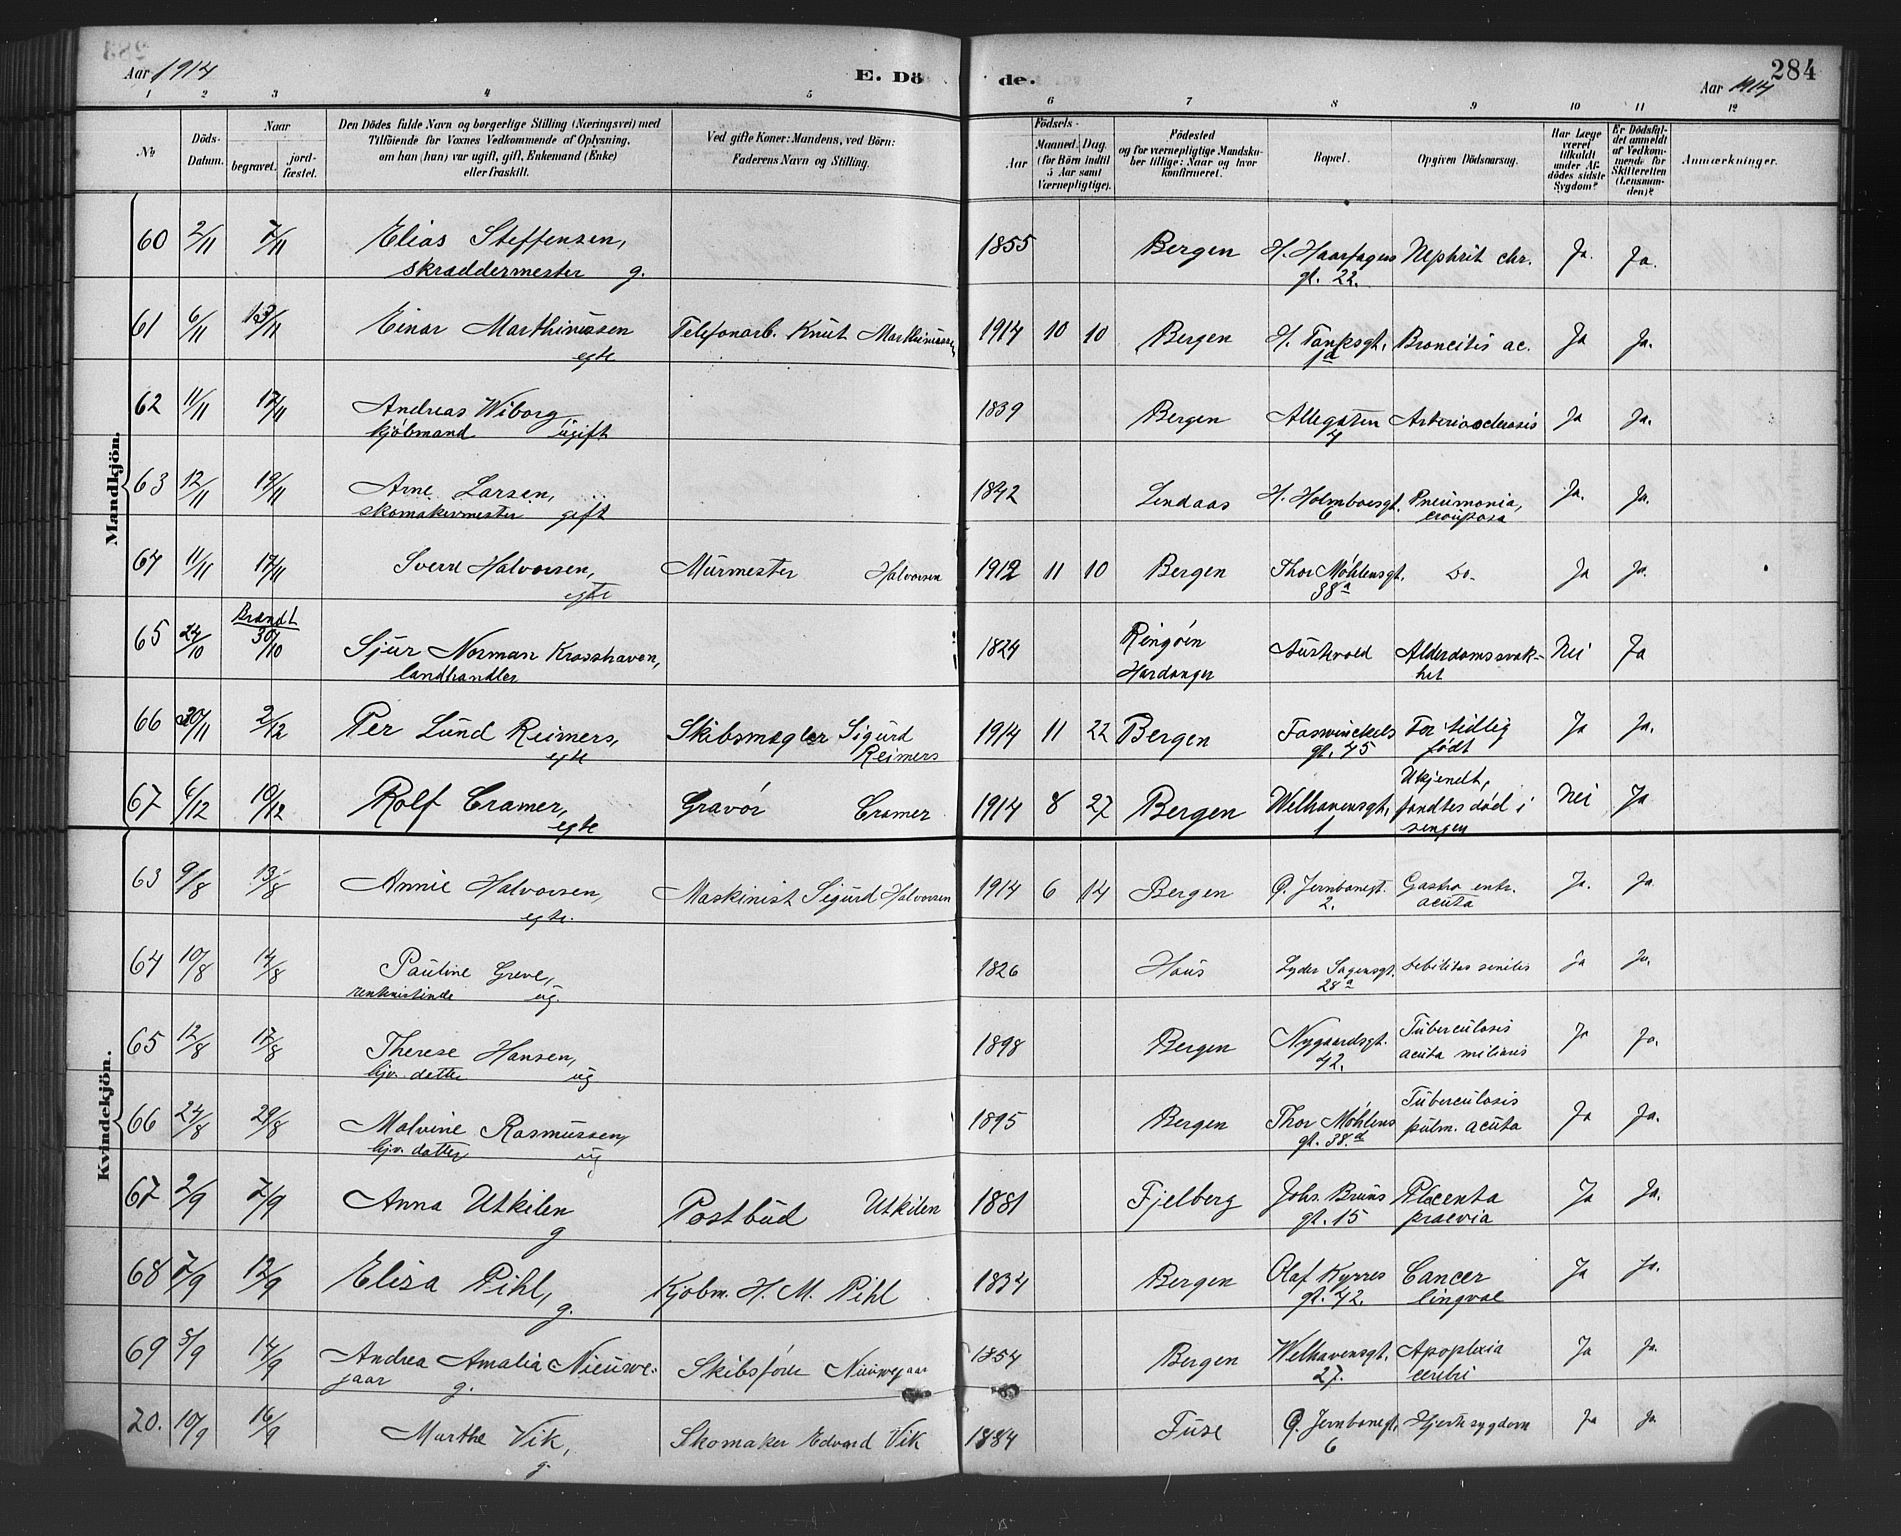 Aar 1914 E. Dö de. Aar 1914 284
1 2 3 4 5 6 7 8 9 10 11 12
No. Döds-Datum. Naar begravet. jord-fæstet. Den Dödes fulde Navn og borgerlige Stilling (Næringsvei) med Tilföiende for Voxnes Vedkommende af Oplysning, om han (hun) var ugift, gift, Enkemand (Enke) eller fraskilt. Ved gifte Koner: Mandens, ved Börn: Faderens Navn og Stilling. Födsels- Aar Maaned. Dag. (for Börn indtil 5 Aar samt Værnepligtige). Födested og for værnepligtige Mandskaber tillige: Naar og hvor konfirmeret. Bopæl. Opgiven Dödsaarsag. Har Læge været tilkaldt under Afdödes sidste Sygdom? Er Dödsfaldet anmeldt af Vedkommende for Skifteretten (Lensmanden)? Anmærkninger.
Mandkjön.
60 2/11 7/11 Elias Steffensen, 1855 Bergen H. Haarfagers Nephrit chr. Ja. Ja.
skræddermester g. gt. 22.
61 6/11 13/11 Einar Marthinussen Telefonarb. Knut Marthinussen 1914 10 10 Bergen H. Tanksgt. Broncitis ac. Ja Ja.
egte 1a
62 11/11 17/11 Andreas Wiborg 1839 Bergen Allegaten Arteriosclerosis Ja Ja.
kjøbmand ugift 4
63 12/11 19/11 Arne Larsen, 1842 Lindaas H. Holmboesgt. Pneumonia, Ja. Ja.
skomakermester gift 6 crouposa
64 11/11 17/11 Sverd Halvorsen, Murmester Halvorsen 1912 11 10 Bergen Thor Møhlensgt. Do. Ja Ja.
egte 38a
Brændt
65 24/10 30/10 Sjur Norman Krosshaven, 1824 Ringøen Aurkvold Alderdomssvak- Nei Ja
landhandler Hardanger het
66 30/11 2/12 Per Lund Reimers, Skibsmægler Sigurd 1914 11 22 Bergen Foswinckels For tidlig Ja Ja.
egte Reimers gt. 45 født
67 6/12 10/12 Rolf Cramer, Gravør Cramer 1914 8 27 Bergen Welhavensgt. Ukjendt, fandtes død i Nei Ja
egte 1 sengen
Kvindekjön.
63 9/8 13/8 Annie Halvorsen, Maskinist Sigurd Halvorsen 1914 6 14 Bergen Ø. Jernbanegt. Gastro entr. Ja. Ja.
egte. 2. acuta
64 10/8 14/8 Pauline Greve, 1826 Haus Lyder Sagensgt. Debilitas senilis ja Ja.
rentnistinde ug. 28a
65 12/8 17/8 Therese Hansen, 1898 Bergen Nygaardsgt. Tuberculosis Ja Ja.
hjv. datter ug 42. acuta miliaris
66 24/8 29/8 Malvine Rasmussen, 1895 Bergen Thor Møhlens Tuberculosis Ja Ja.
hjv. datter ug gt. 38.d pulm. acuta
67 2/9 7/9 Anna Utkilen Postbud Utkilen 1881 Fjelberg Johs. Bruns Placenta Ja Ja.
g gt. 15 praevia
68 7/9 12/9 Elisa Pihl, Kjøbm. H. M. Pihl 1834 Bergen Olaf Kyrres Cancer Ja Ja.
g. gt. 42. lingvae
69 8/9 14/9 Andrea Amalia Nieuwe- Skibsfører Nieuwejaar 1854 Bergen Welhavensgt. Apoplexia Ja Ja.
jaar g. 27. cerebri
70. 10/9 16/9 Marthe Vik, Skomaker Edvard Vik 1884 Fuse Ø. Jernbanegt. Hjertesygdom Ja Ja.
g. 6